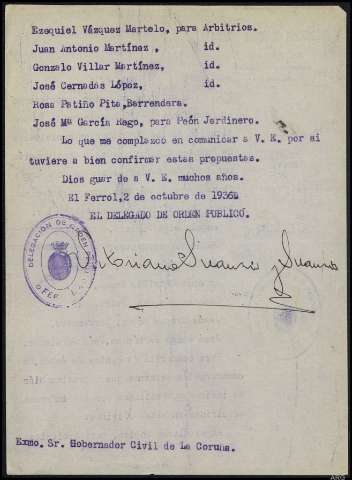 Ezequiel Vázquez Martelo, para Arbitrios.
Juan Antonio Martínez, id.
Gonzalo Villar Martínez, id.
José Cernadas López, id.
Rosa Patiño Pita, Barrendera.
José Mª García Rego, para Peón Jardinero.
Lo que me complazco en comunicar a V. E. por si
tuviere a bien confirmar estas propuestas.
Dios guarde a V. E. muchos años.
El Ferrol, 2 de octubre de 1936.
EL DELEGADO DE ORDEN PÚBLICO.
DELEGACION DE ORDEN
Victoriano Suanzes y Suanzes
Exmo. Sr. Gobernador Civil de La Coruña.
ARG